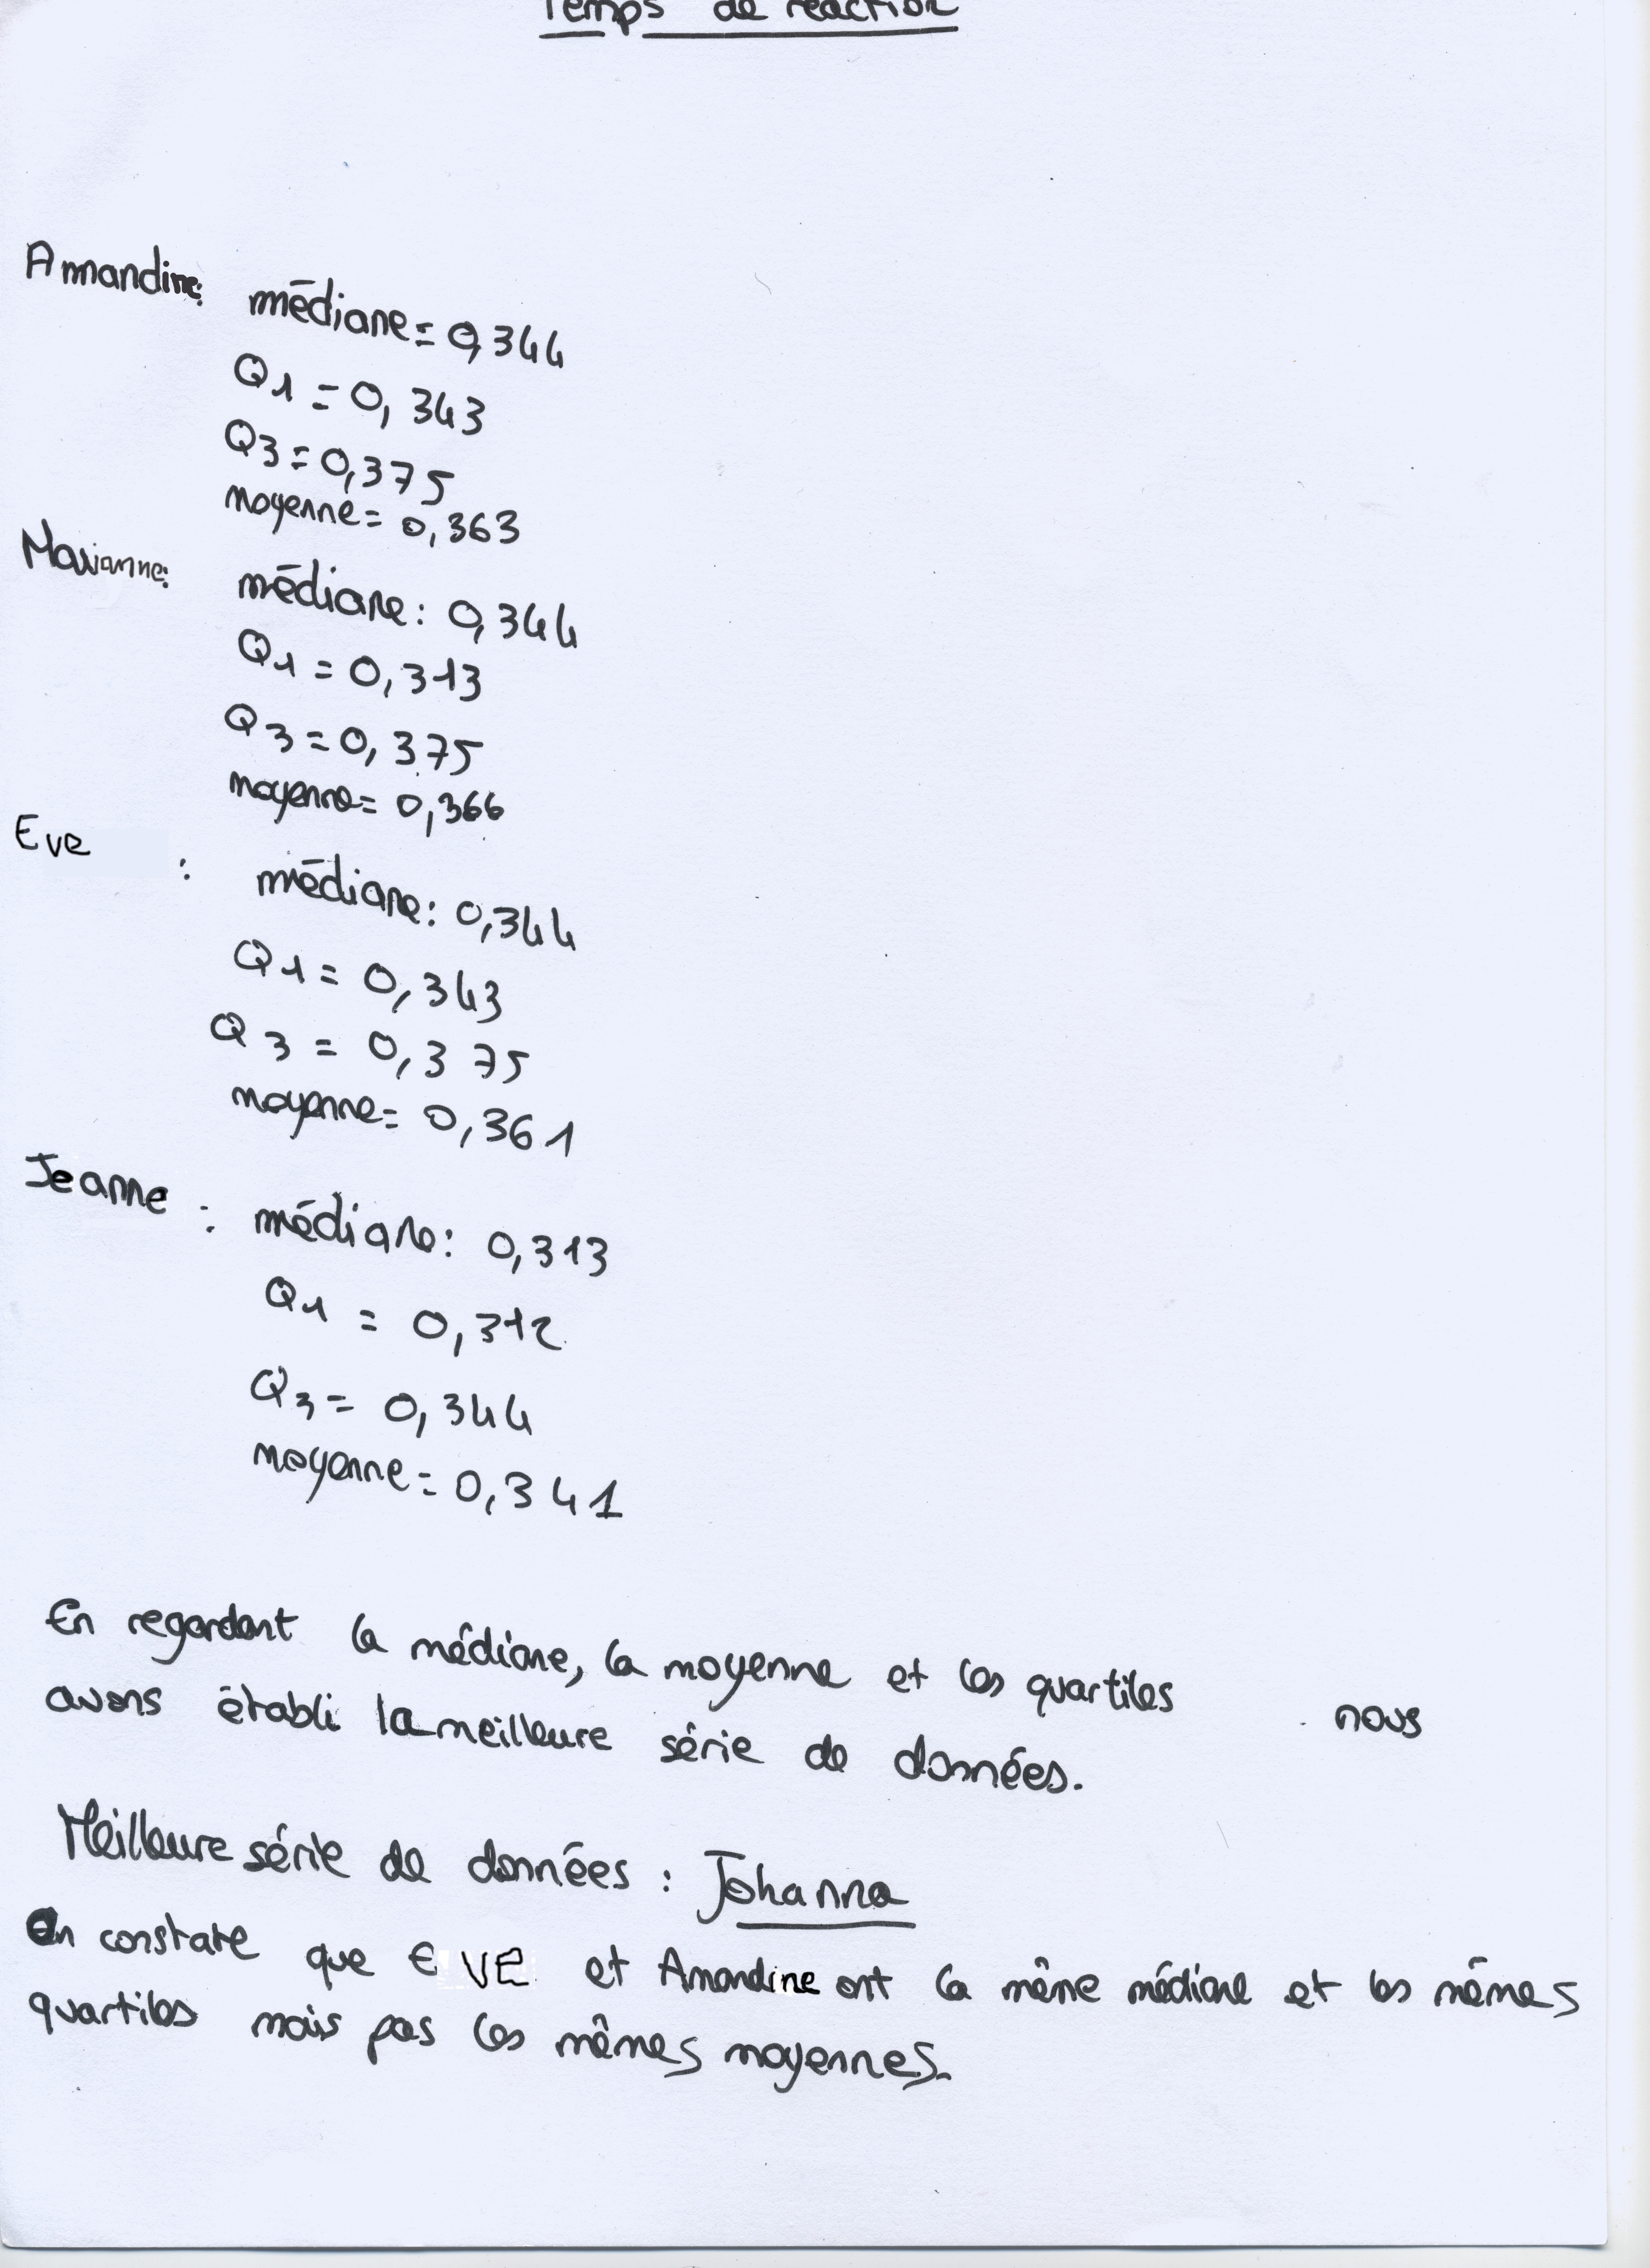 Temps de réaction
Amandine: médiane = 0,344
Q1 = 0, 343
Q3 = 0,375
moyenne = 0,363
Marianne: médiane : 0,344
Q1 = 0, 313
Q3 = 0, 375
moyenne = 0,366
Eve : médiane : 0,344
Q1 = 0, 343
Q3 = 0,375
moyenne = 0,361
Jeanne : médiane : 0,313
Q1 = 0,312
Q3 = 0,344
moyenne = 0,341
En regardant la médiane, la moyenne et les quartiles nous
avons établi la meilleure série de données.
Meilleure série de données : Johanna
On constate que EVE et Amandine ont la même médiane et les mêmes
quartiles mais pas les mêmes moyennes.